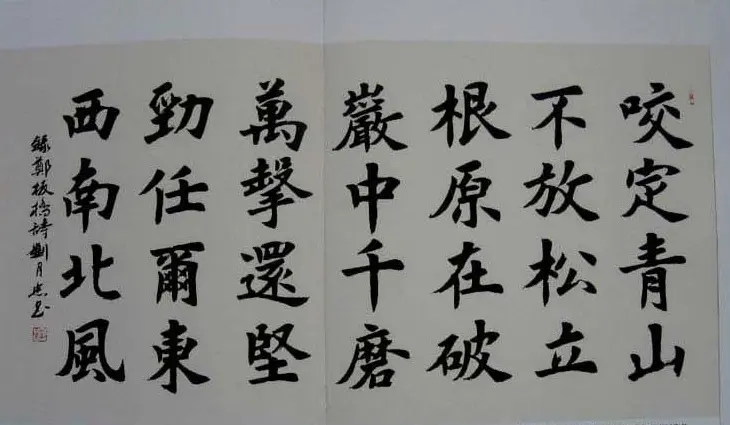 咬定青山
不放松立
根原在破
巖中千磨
萬擊還堅
勁任爾東
西南北風
錄鄭板橋詩劉月書